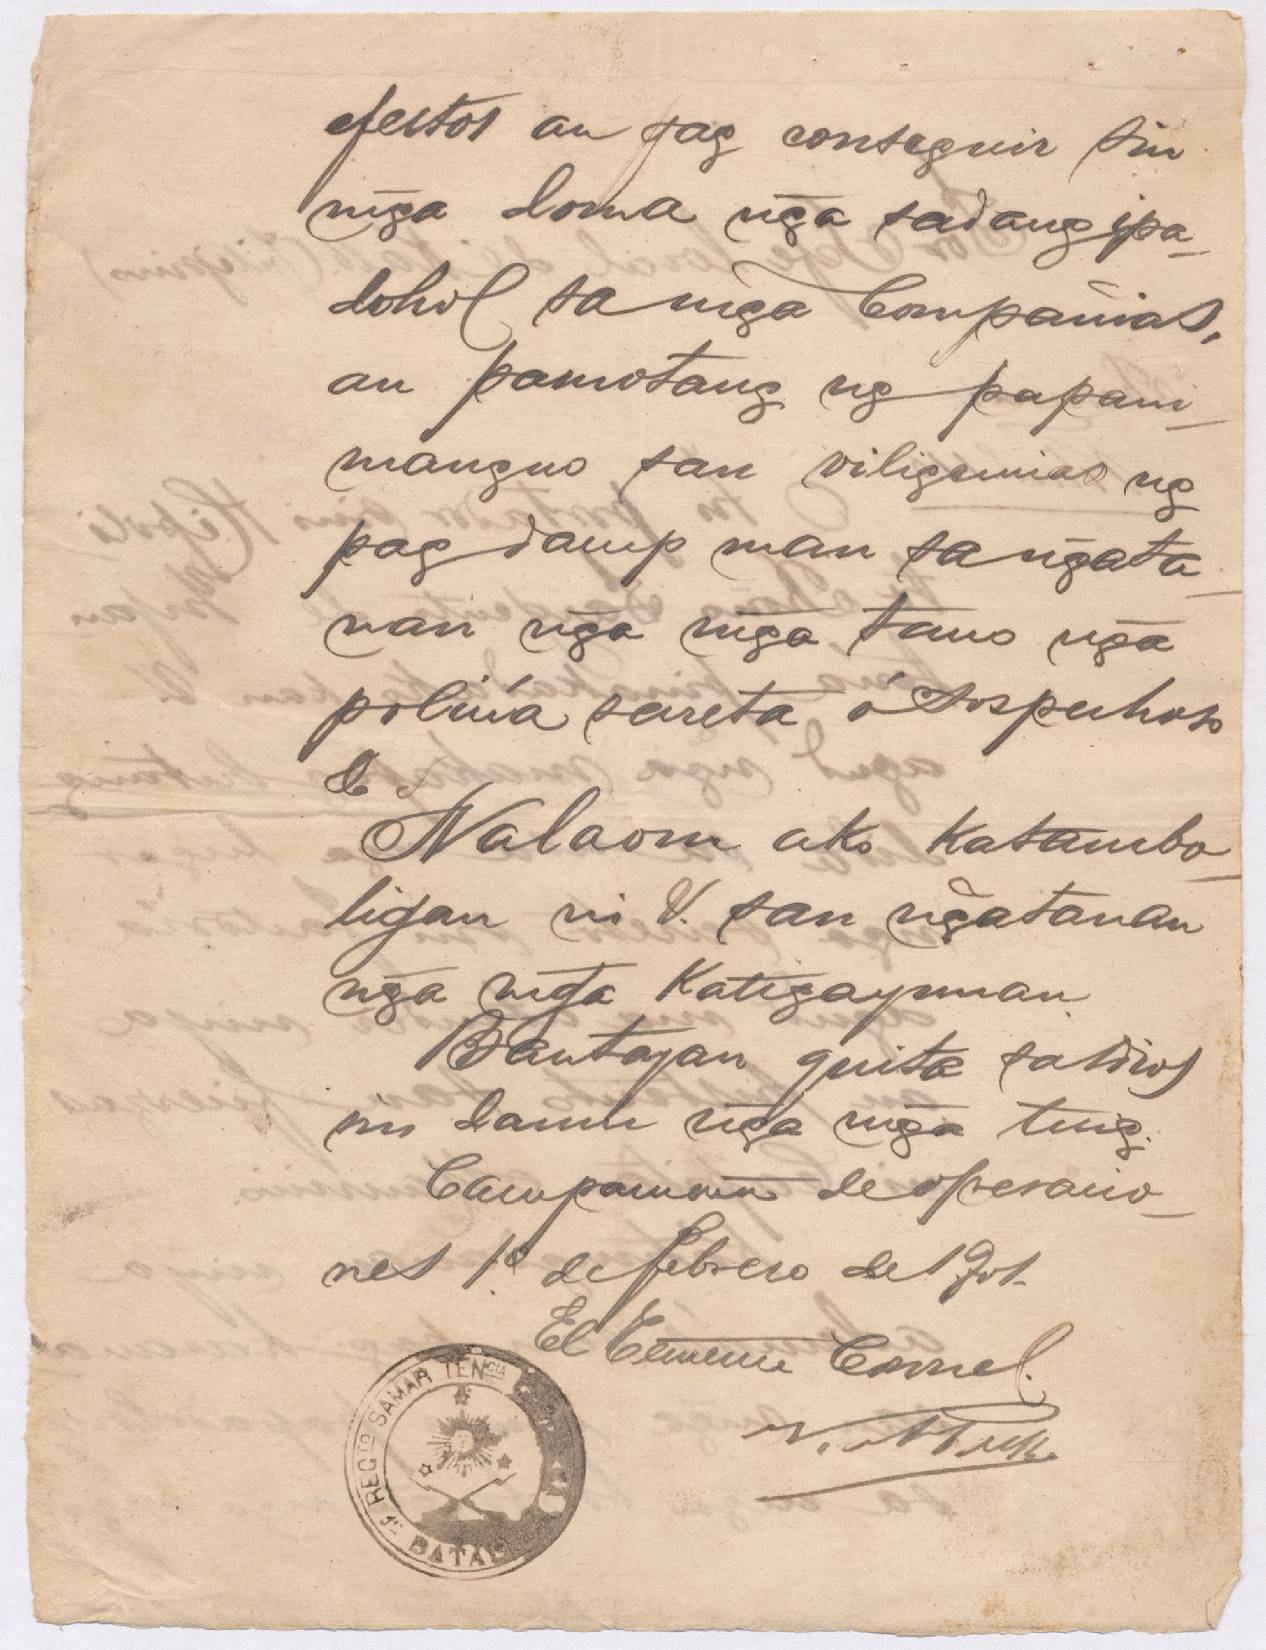 efectos an pag conseguir sin
mg̃a loma ng̃a sadang ipa-
dohol sa mg̃a Compañias,
an pamotang ng papani-
manguo san viligencias ng
pag damp man sa ng̃ata-
nan ng̃a mg̃a tauo ng̃a
policía secreta ó sospechoso
&
Nalaom ako katambo-
ligan ni V. san ng̃atanan
ng̃a mg̃a Katigayunan
Bantayan quita sa Dios
sin damu ng̃a mg̃a tuig.
Campamento de operacio-
nes 1º de febrero de 1901.
El Teniente Coronel.
1er REGTO SAMAR TENCIA
BATAL